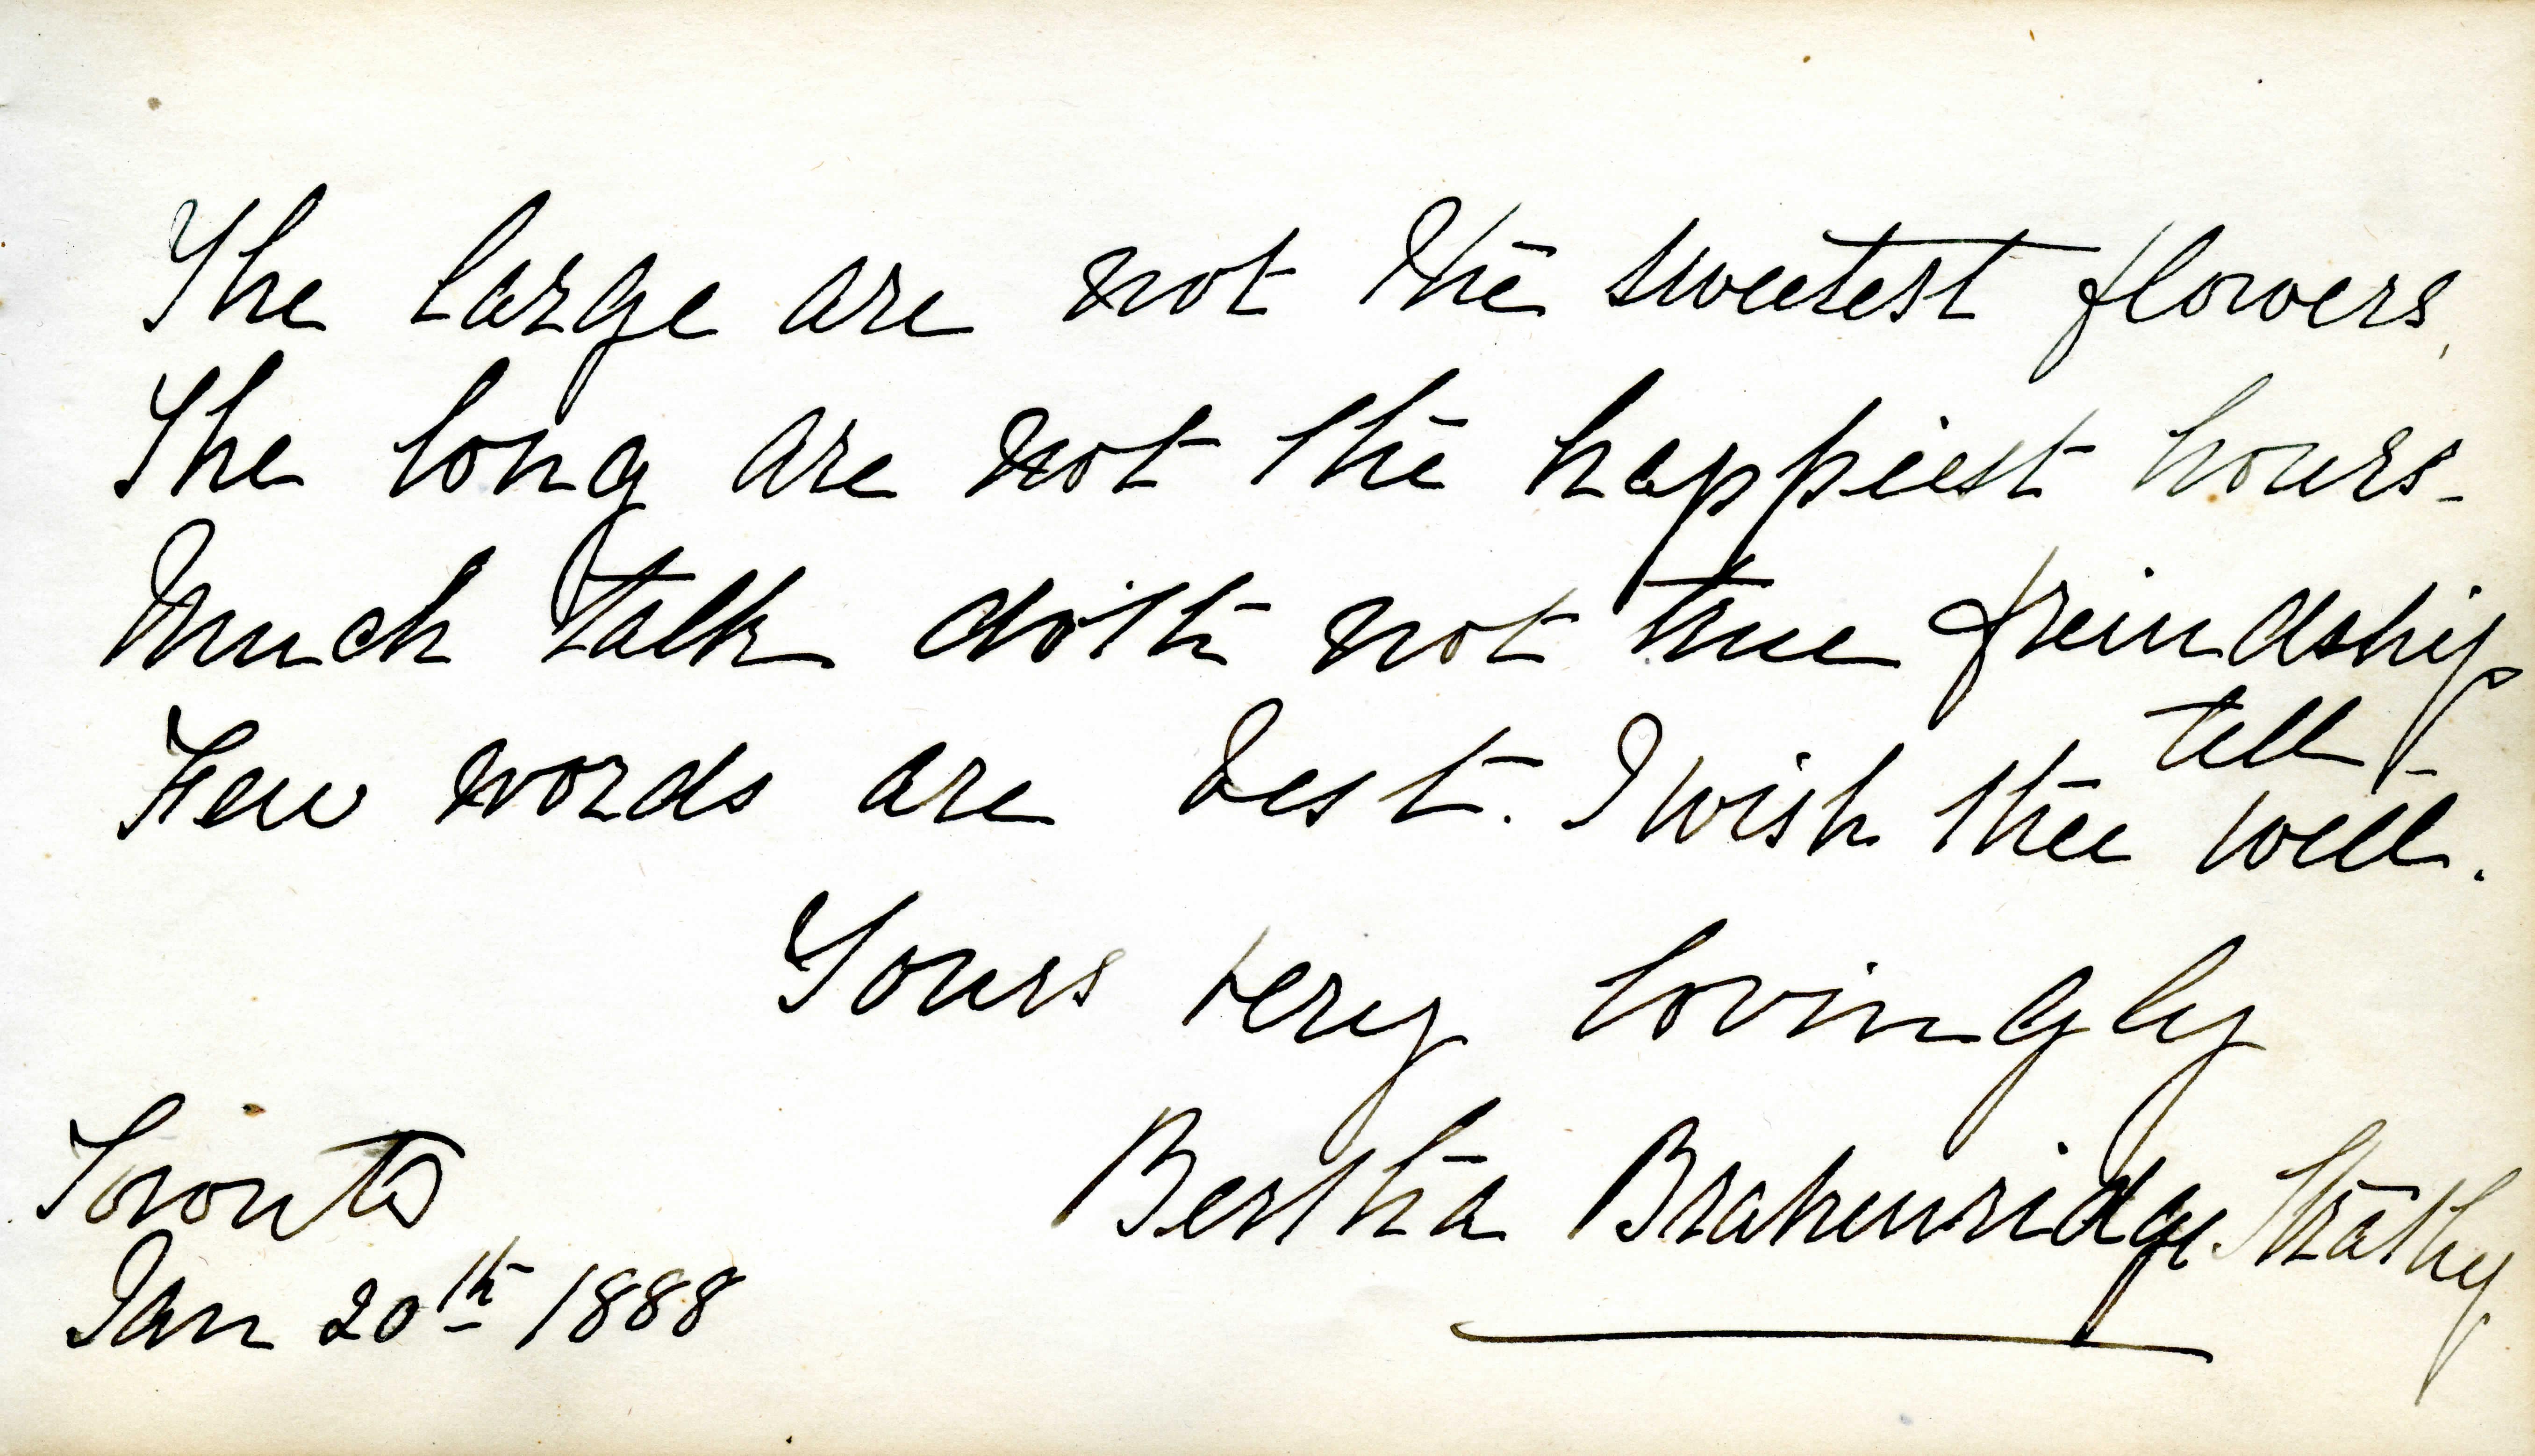 The large are not the sweetest flowers,
The long are not the happiest hours -
Much talk doth not true freindship
tell -
Few words are best. I wish thee well.
Yours very lovingly
Bertha Brakenridge Strathy
Toronto
Jan 20th 1888